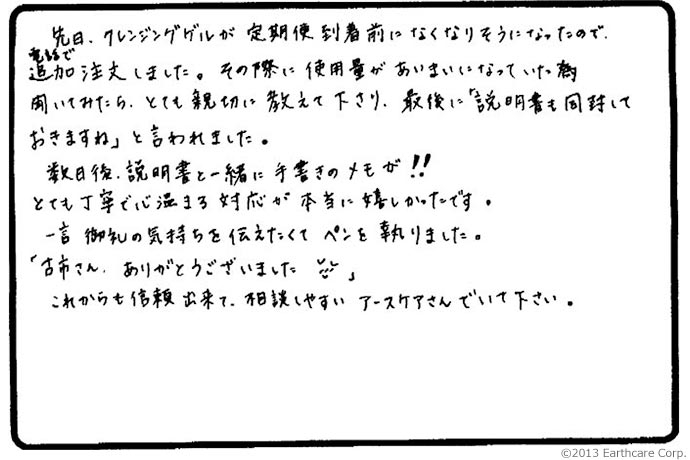 先日、クレンジングゲルが定期便到着前になくなりそうになったので、
電話で
追加注文しました。その際に使用量があいまいになっていた為
聞いてみたら、とても親切に教えて下さり、最後に「説明書も同封して
おきますね」と言われました。
数日後、説明書と一緒に手書きのメモが!!
とても丁寧で心温まる対応が本当に嬉しかったです。
一言御礼の気持ちを伝えたくてペンを執りました。
「古市さん、ありがとうございました」
これからも信頼出来て、相談しやすいアースケアさんでいて下さい。
©2013 Earthcare Corp.